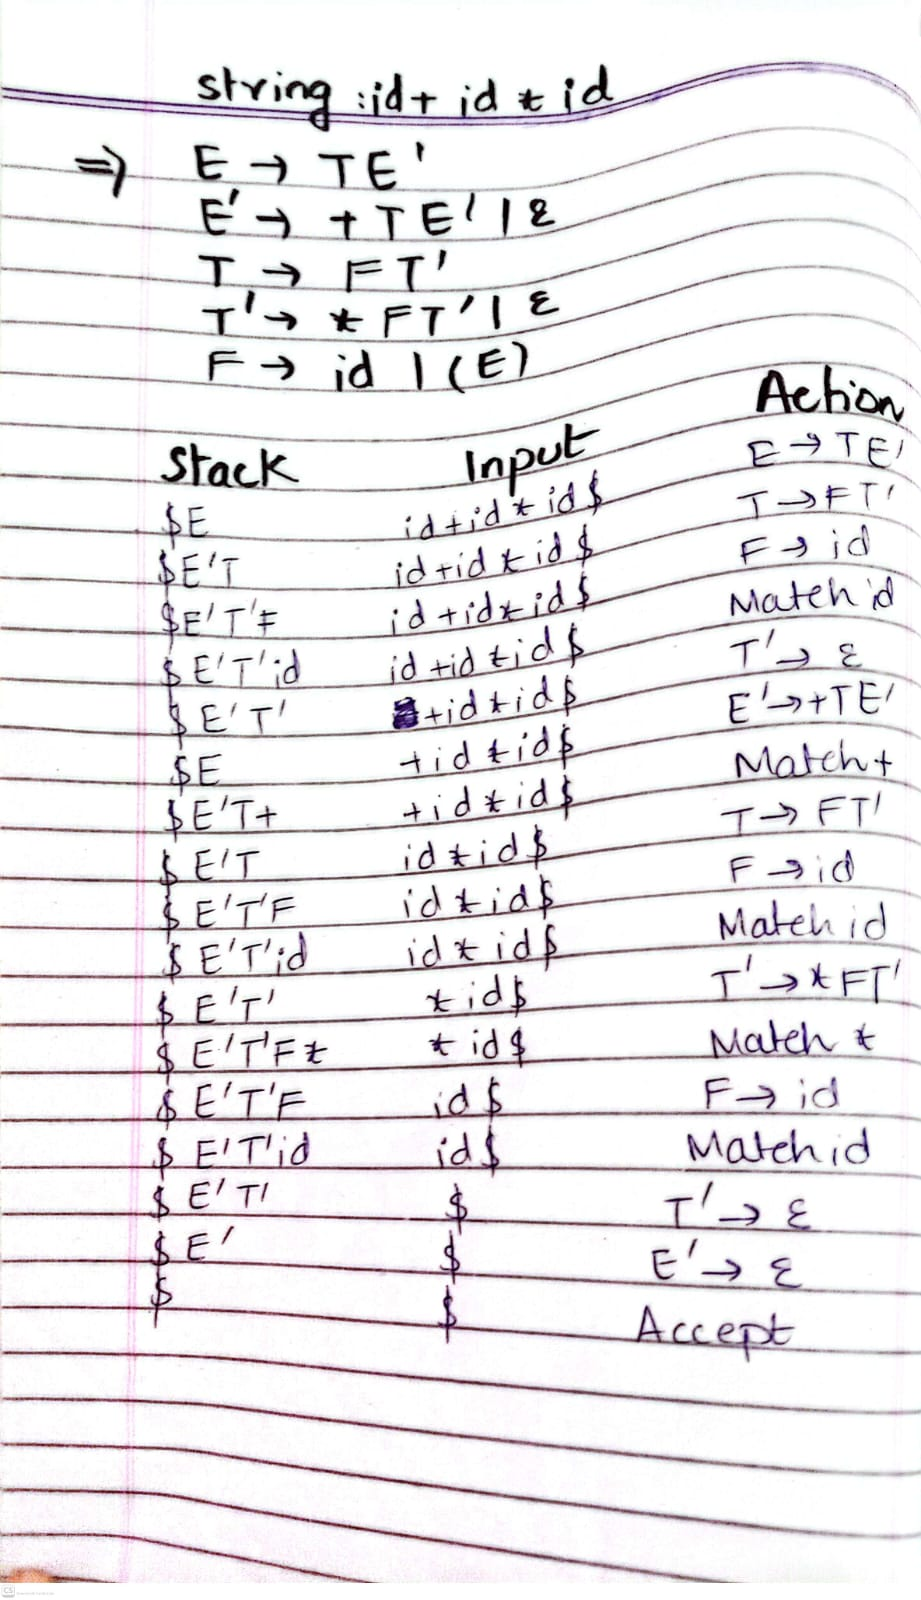 string : id + id * id
⇒ E → TE'
E' → +TE' | ε
T → FT'
T' → *FT' | ε
F → id | (E)
Stack Input Action
$E id+id*id$ E → TE'
$E'T id+id*id$ T → FT'
$E'T'F id+id*id$ F → id
$E'T'id id+id*id$ Match id
$E'T' +id*id$ T' → ε
$E +id*id$ E' → +TE'
$E'T+ +id*id$ Match +
$E'T id*id$ T → FT'
$E'T'F id*id$ F → id
$E'T'id id*id$ Match id
$E'T' *id$ T' → *FT'
$E'T'F* *id$ Match *
$E'T'F id$ F → id
$E'T'id id$ Match id
$E'T' $ T' → ε
$E' $ E' → ε
$ $ Accept
CS